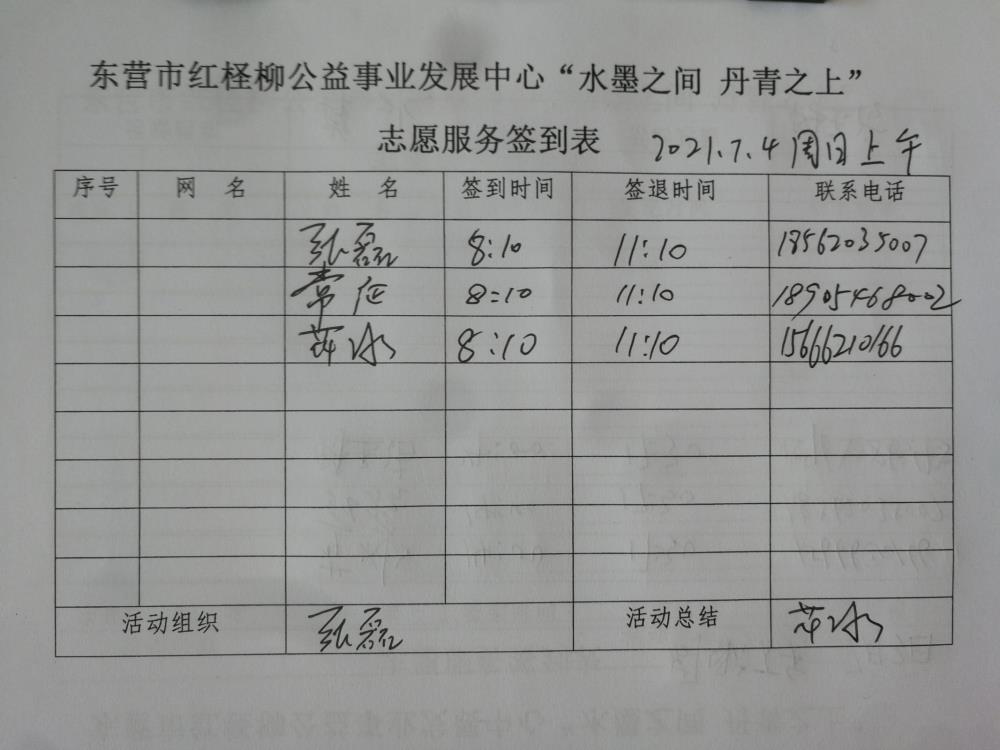 东营市红柽柳公益事业发展中心“水墨之间 丹青之上”
志愿服务签到表 2021.7.4 周日上午
序号 网 名 姓 名 签到时间 签退时间 联系电话
张磊 8:10 11:10 18562035007
常征 8:10 11:10 18905468002
8:10 11:10 15666210166
活动组织 张磊 活动总结